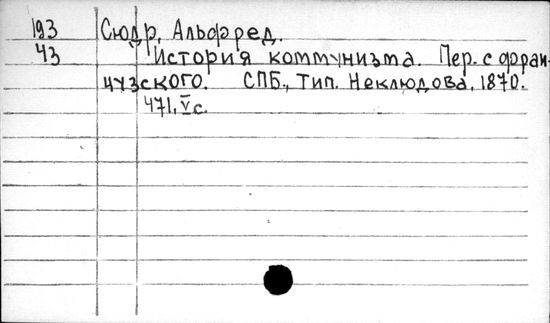 193 Сюдр, Альфред.
43 История коммунизма. Пер. с фран-
цузского. СПБ., Тип. Неклюдова, 1870.
471, V с.